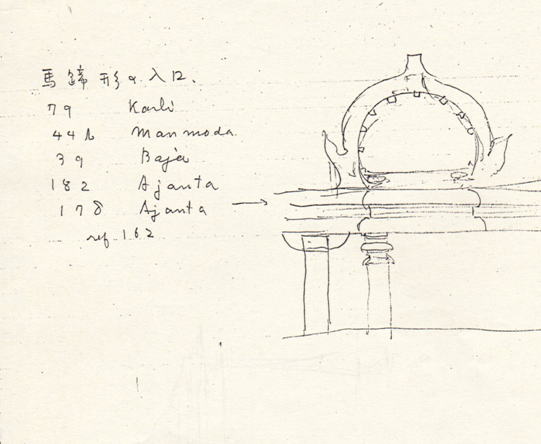 馬蹄形の入口.
79 Karli
44b Manmoda.
39 Baja
182 Ajanta
178 Ajanta →
ref. 162